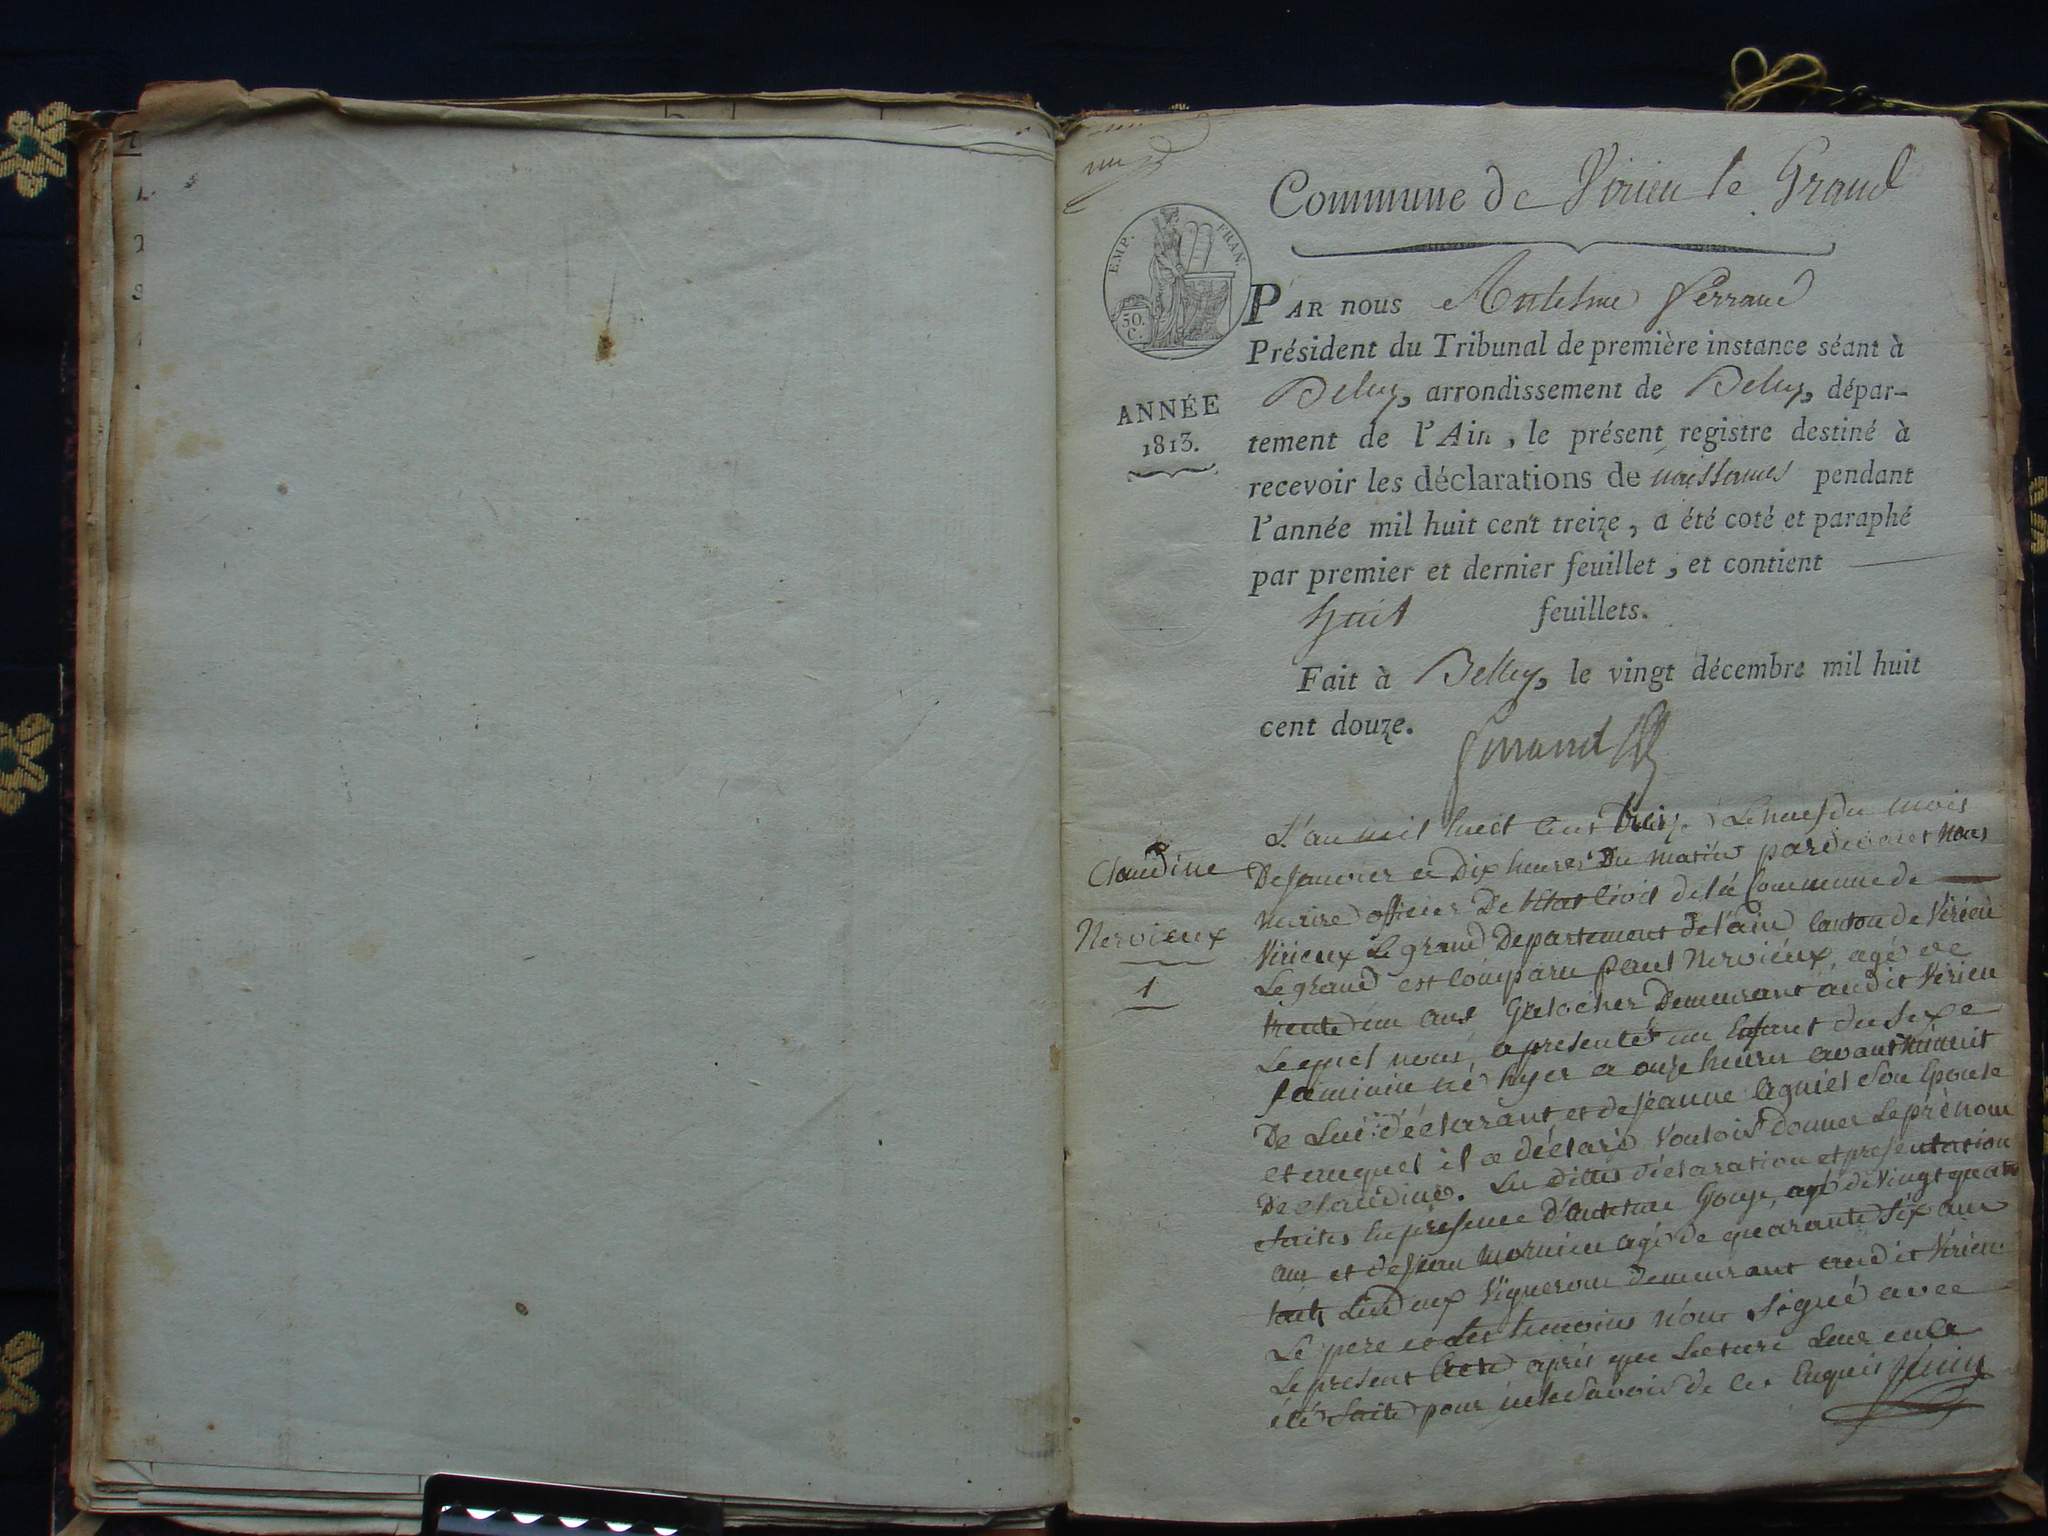 Commune de Virieu le Grand
EMP. FRAN.
50. C.
ANNÉE
1813.
PAR nous Antelme Ferrand
Président du Tribunal de première instance séant à
Belley, arrondissement de Belley, dépar-
tement de l'Ain, le présent registre destiné à
recevoir les déclarations de naissances pendant
l'année mil huit cent treize, a été coté et paraphé
par premier et dernier feuillet, et contient
huit feuillets.
Fait à Belley, le vingt décembre mil huit
cent douze.
Ferrand
Claudine
Nervieux
1
L'an mil huit cent treize Le neuf du mois
De Janvier a Dix heures Du matin pardevant nous
maire officier De l'état Civil de la Commune de
Virieux Le grand Departement de l'ain Canton de Virieu
Le grand est Comparu paul Nervieux, agé de
trente un ans Galocher Demeurant audit Virieu
Lequel nous a presenté un Enfant du Sexe
feminin né hyer a onze heures avant Minuit
De Lui déclarant et de jeanne Son Epouse
et auquel il a déclaré Vouloir donner Le prénom
De Claudine. Les dittes déclaration et presentation
faites En présence d'antelme Gouje, agé de Vingt quatre
ans et de jean mornieu agé de quarante Six ans
tout Les deux Vigneron demeurant audit Virieu
Le pere et Les temoins n'ont Signé avec
Le present acte après que Lecture Leur en a
été faite pour ne Savoir de Ce Enquis